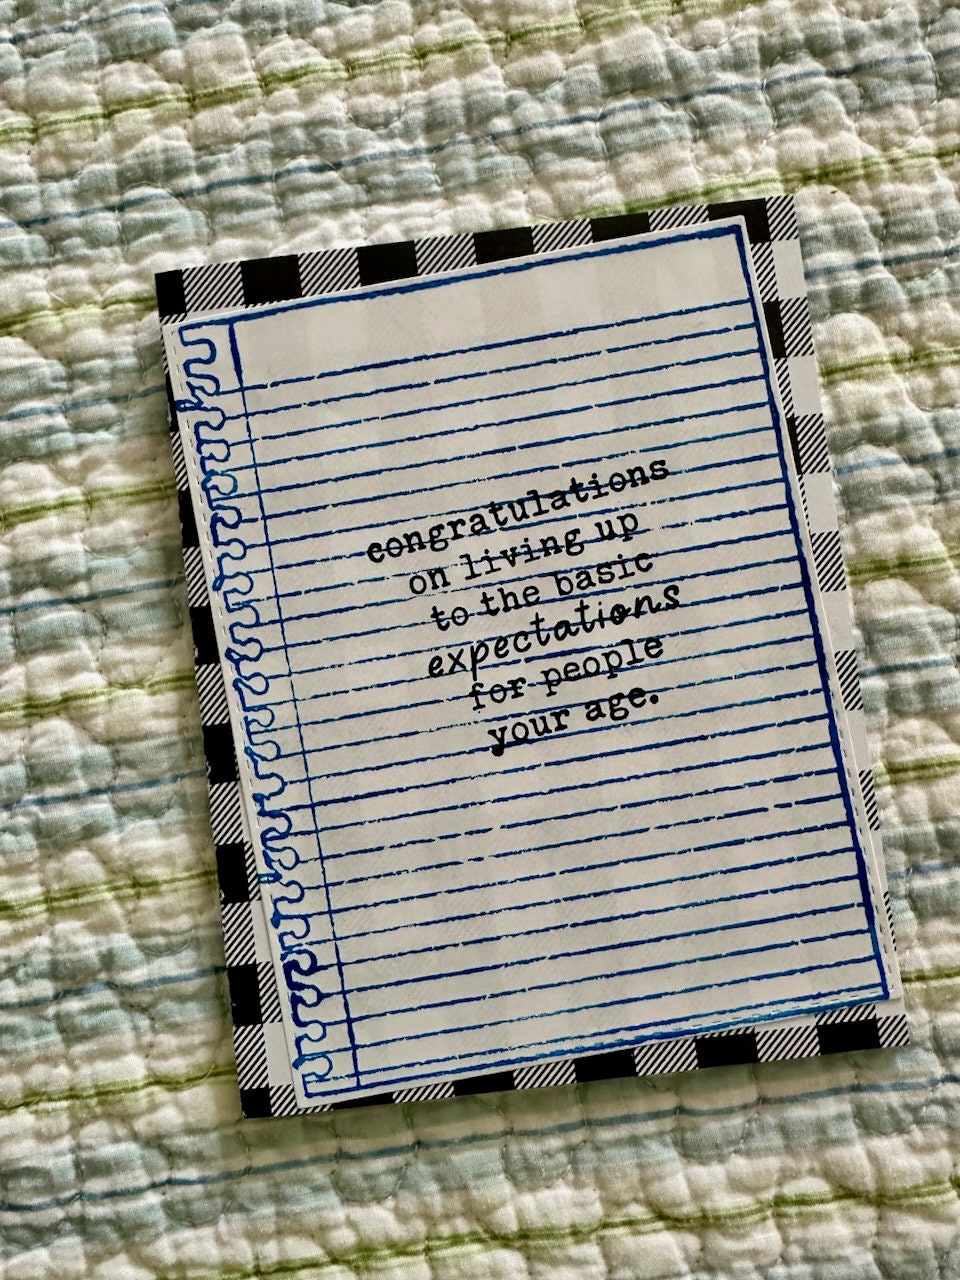 congratulations
on living up
to the basic
expectations
for people
your age.